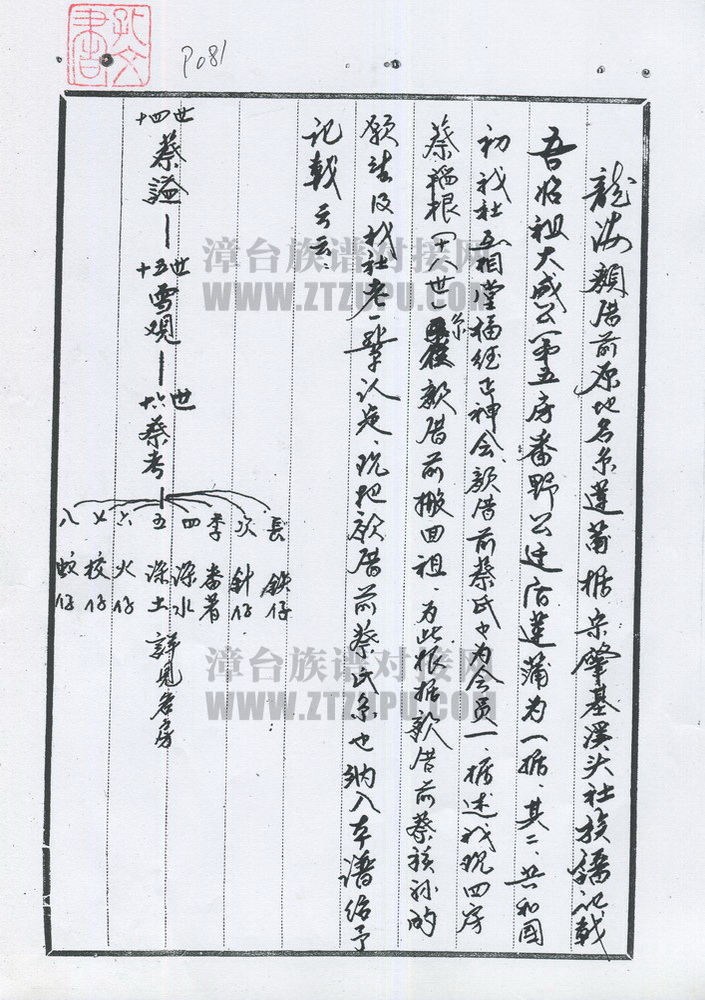 P081
龙海颜厝前原地名乐莲蒲据宗肇基溪头社族谱记载
吾始祖大成公第五房番野公迁居莲蒲为一据、其二、共和国
初我社互相堂福德正神会、颜厝前蔡氏也为会员一、据述我观四房
蔡福根(十八世系颜厝前搬回祖、为此根据颜厝前蔡族孙的
愿望及我社老一辈认定、现把颜厝前蔡氏系也纳入本谱给予
记载云云：
十四世 蔡謚—十五世雪观—十六世蔡考
長 鉄仔
次 針仔
季 番薯
四 深水
五 深土
六 火仔
七 校仔
八 蚊仔
詳見各房
漳台族谱对接网
WWW.ZTZUPU.COM
漳台族谱对接网
WWW.ZTZUPU.COM